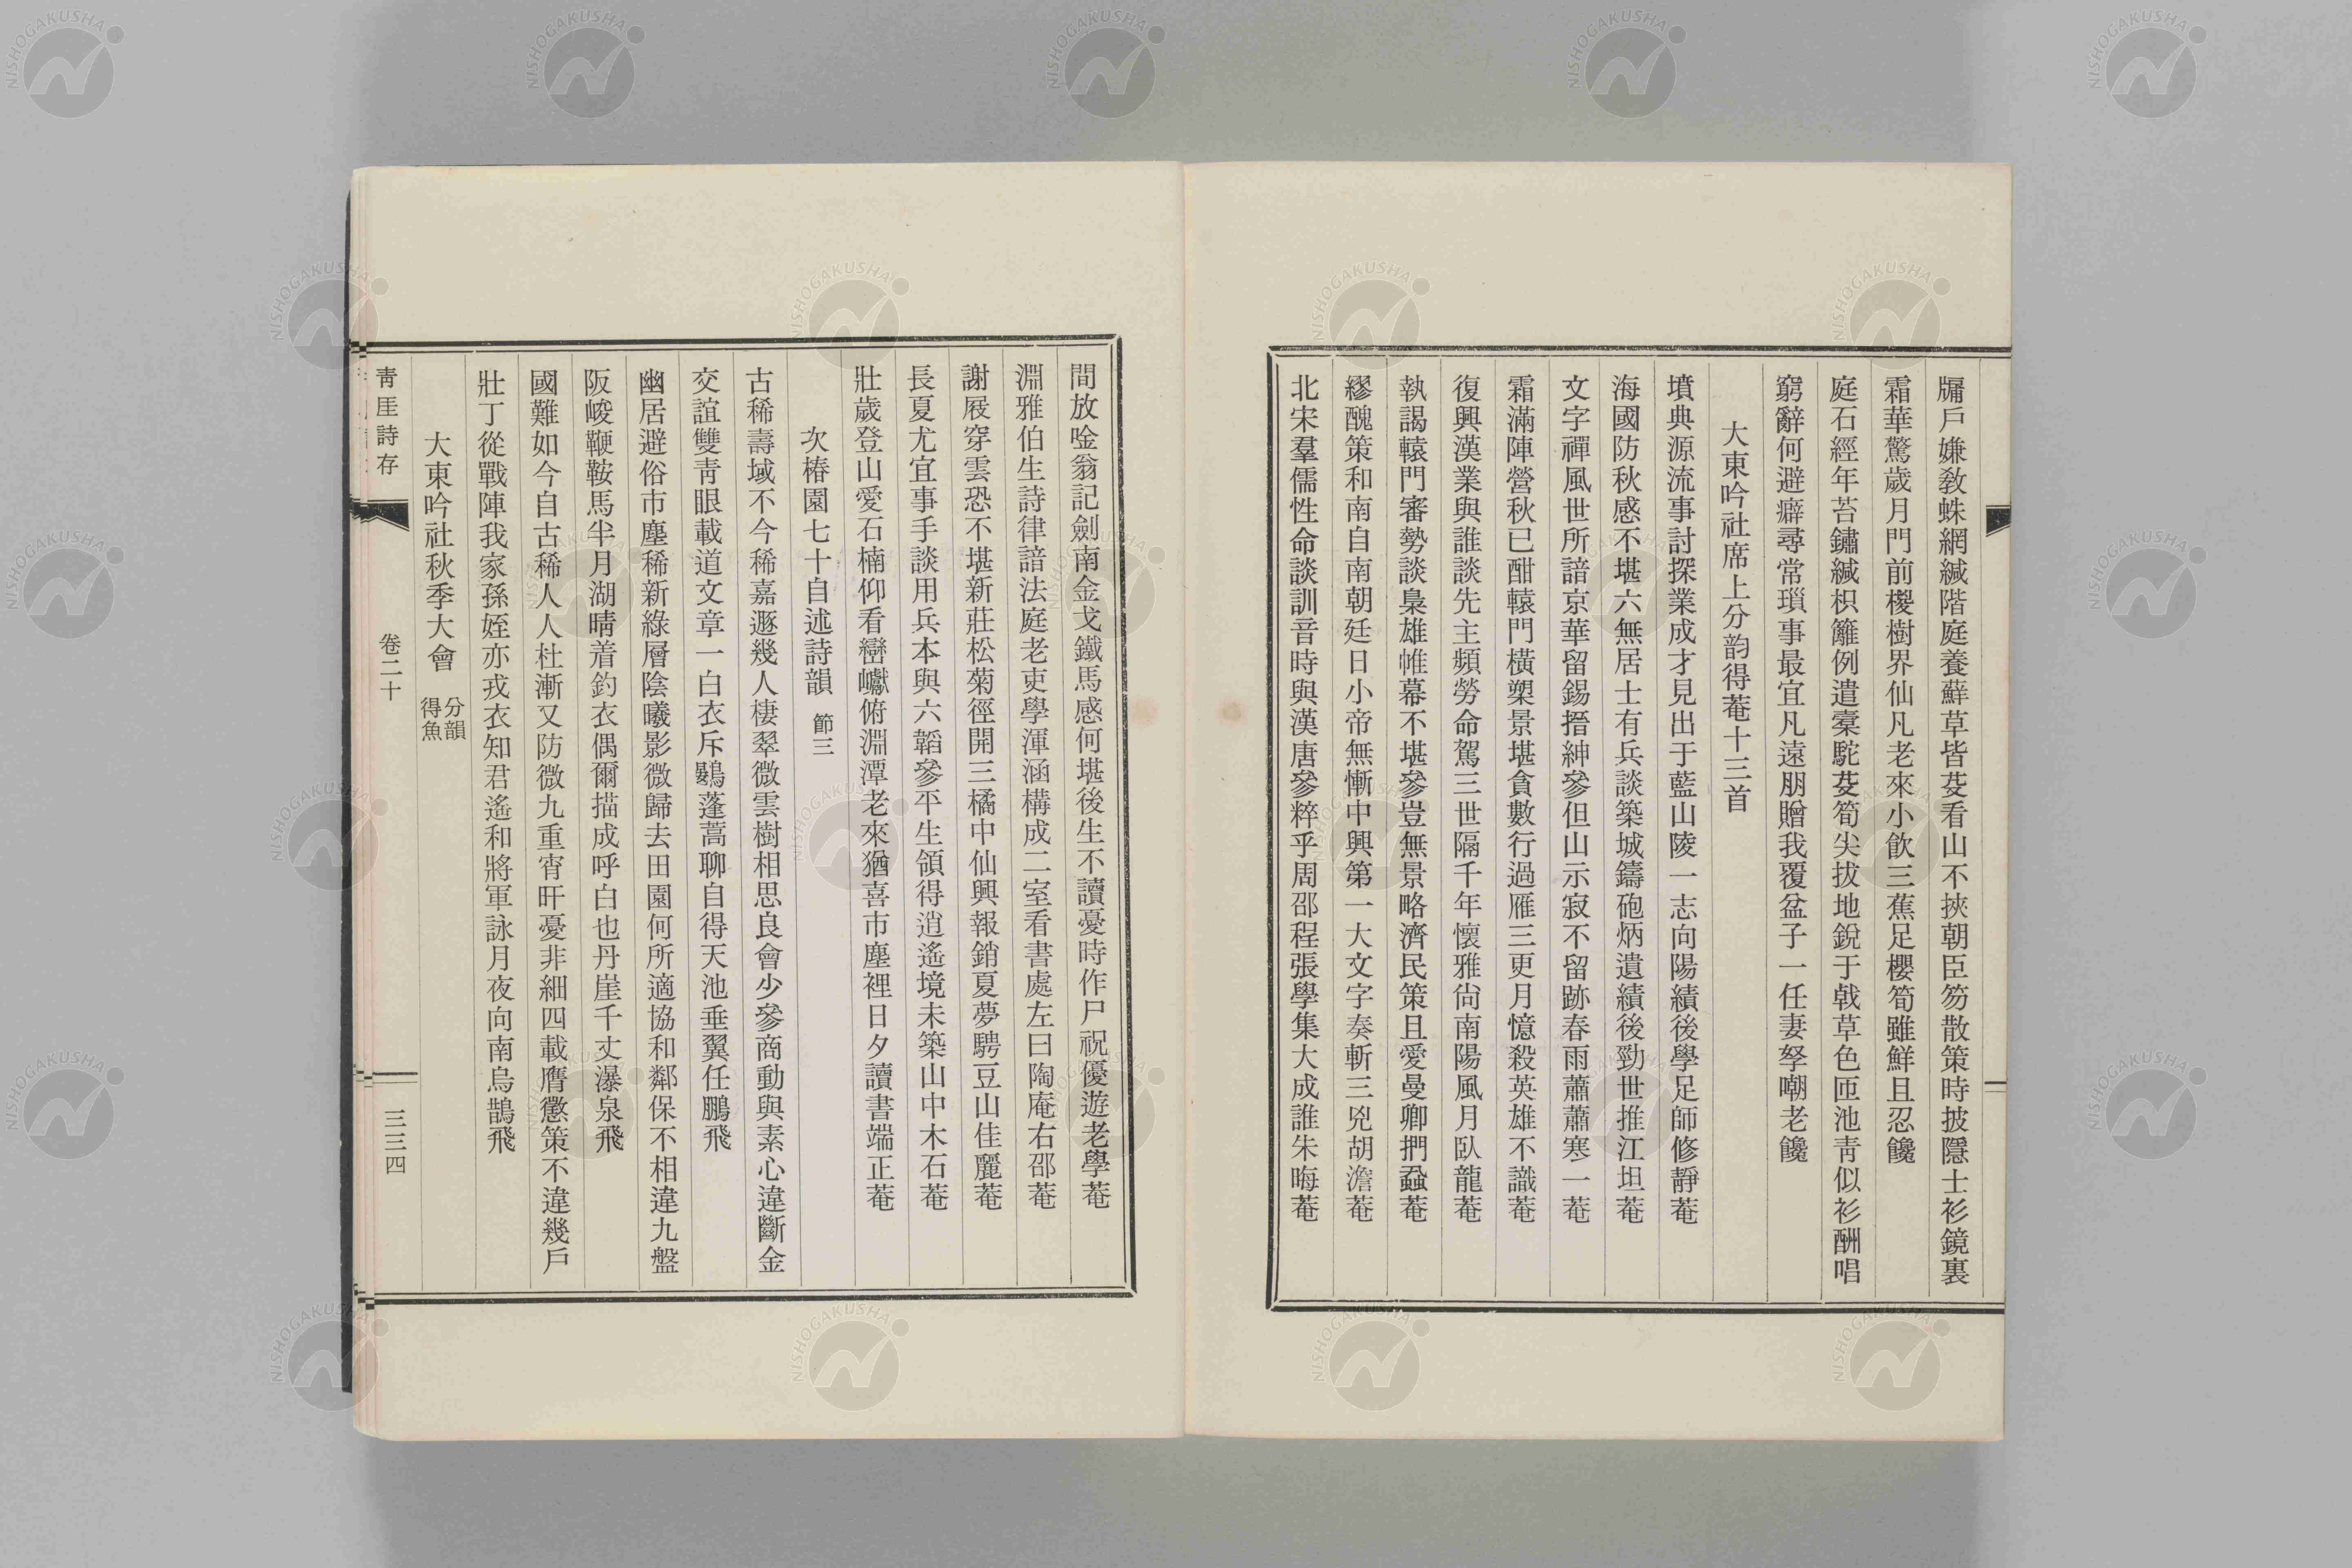 牖戶嫌敎蛛網緘階庭養蘚草皆芟看山不挾朝臣笏散策時披隱士衫鏡裏
霜華驚歲月門前椶樹界仙凡老來小飮三蕉足櫻筍雖鮮且忍饞
庭石經年苔鏽緘枳籬例遣橐駝芟筍尖拔地銳于戟草色匝池靑似衫酬唱
窮辭何避癖尋常瑣事最宜凡遠朋贈我覆盆子一任妻孥嘲老饞
大東吟社席上分韵得菴十三首
墳典源流事討探業成才見出于藍山陵一志向陽績後學足師修靜菴
海國防秋感不堪六無居士有兵談築城鑄砲炳遺績後勁世推江坦菴
文字禪風世所諳京華留錫搢紳參但山示寂不留跡春雨蕭蕭寒一菴
霜滿陣營秋已酣轅門橫槊景堪貪數行過雁三更月憶殺英雄不識菴
復興漢業與誰談先主頻勞命駕三世隔千年懷雅尙南陽風月臥龍菴
執謁轅門審勢談梟雄帷幕不堪參豈無景略濟民策且愛曼卿捫蝨菴
繆醜策和南自南朝廷日小帝無慚中興第一大文字奏斬三兇胡澹菴
北宋羣儒性命談訓音時與漢唐參粹乎周邵程張學集大成誰朱晦菴
間放唫翁記劍南金戈鐵馬感何堪後生不讀憂時作尸祝優遊老學菴
淵雅伯生詩律諳法庭老吏學渾涵構成二室看書處左曰陶庵右邵菴
謝屐穿雲恐不堪新莊松菊徑開三橘中仙興報銷夏夢騁豆山佳麗菴
長夏尤宜事手談用兵本與六韜參平生領得逍遙境未築山中木石菴
壯歲登山愛石楠仰看巒巘俯淵潭老來猶喜市塵裡日夕讀書端正菴
次椿園七十自述詩韻 節三
古稀壽域不今稀嘉遯幾人棲翠微雲樹相思良會少參商動與素心違斷金
交誼雙靑眼載道文章一白衣斥鷃蓬蒿聊自得天池垂翼任鵬飛
幽居避俗市塵稀新綠層陰曦影微歸去田園何所適協和鄰保不相違九盤
阪峻鞭鞍馬半月湖晴着釣衣偶爾描成呼白也丹崖千丈瀑泉飛
國難如今自古稀人人杜漸又防微九重宵旰憂非細四載膺懲策不違幾戶
壯丁從戰陣我家孫姪亦戎衣知君遙和將軍詠月夜向南烏鵲飛
大東吟社秋季大會 分韻得魚
靑厓詩存 卷二十 三三四